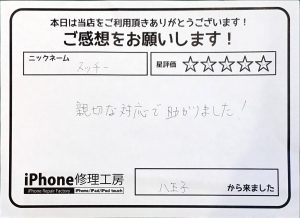 本日は当店をご利用頂きありがとうございます！
ご感想をお願いします！
ニックネーム
スッチー
星評価 ☆☆☆☆☆
親切な対応で助かりました！
iPhone修理工房
iPhone Repair Factory
iPhone/iPad/iPod touch
八王子 から来ました